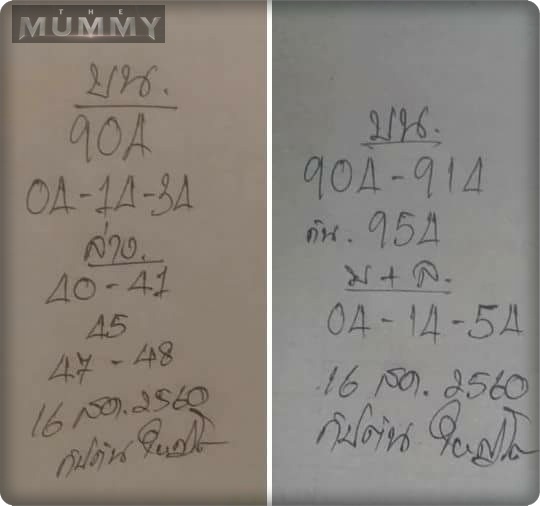 THE
MUMMY
บน.
904
04-14-34
ล่าง.
40-41
45
47-48
16 สค. 2560
กัปตัน ใหญ่โต
บน.
904-914
กัน. 954
บ+ล.
04-14-54
16 สค. 2560
กัปตัน ใหญ่โต